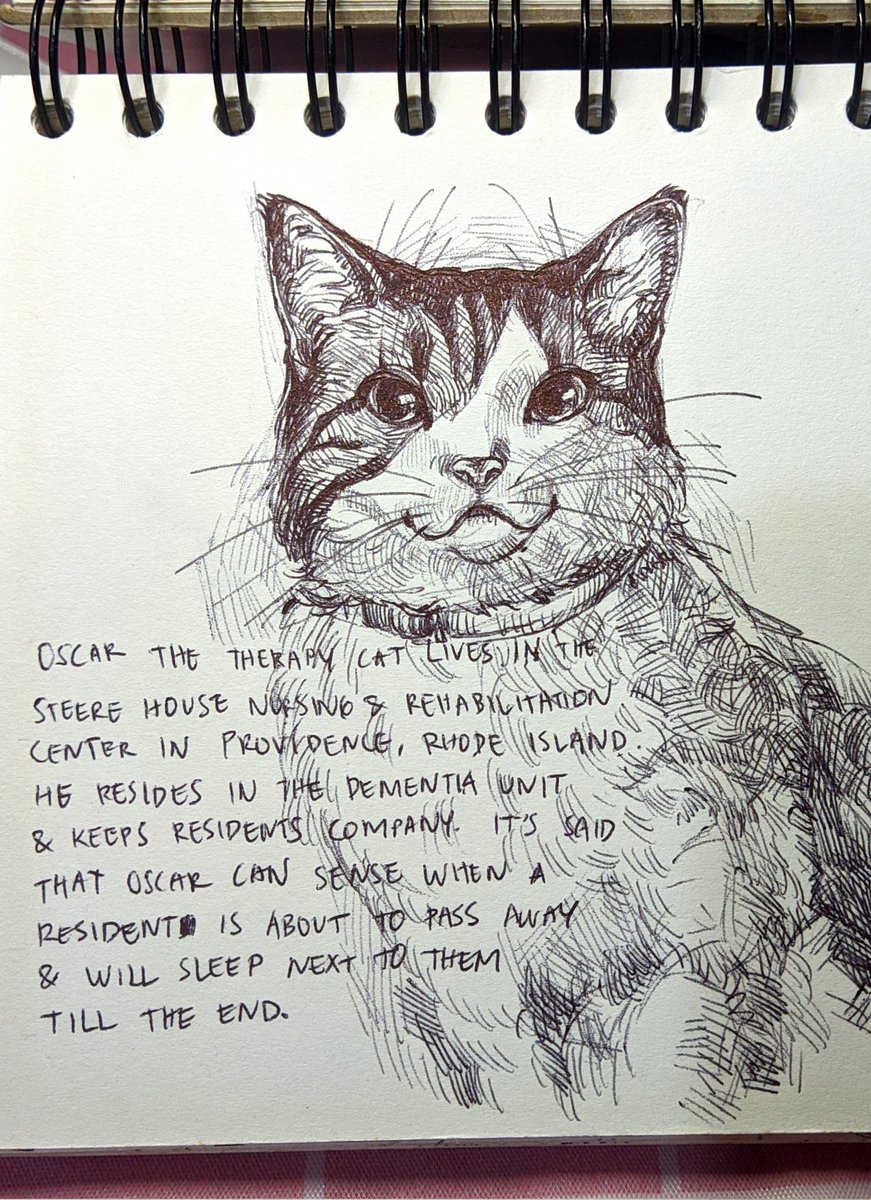 OSCAR THE THERAPY CAT LIVES IN THE
STEERE HOUSE NURSING & REHABILITATION
CENTER IN PROVIDENCE, RHODE ISLAND.
HE RESIDES IN THE DEMENTIA UNIT
& KEEPS RESIDENTS COMPANY. IT'S SAID
THAT OSCAR CAN SENSE WHEN A
RESIDENT IS ABOUT TO PASS AWAY
& WILL SLEEP NEXT TO THEM
TILL THE END.